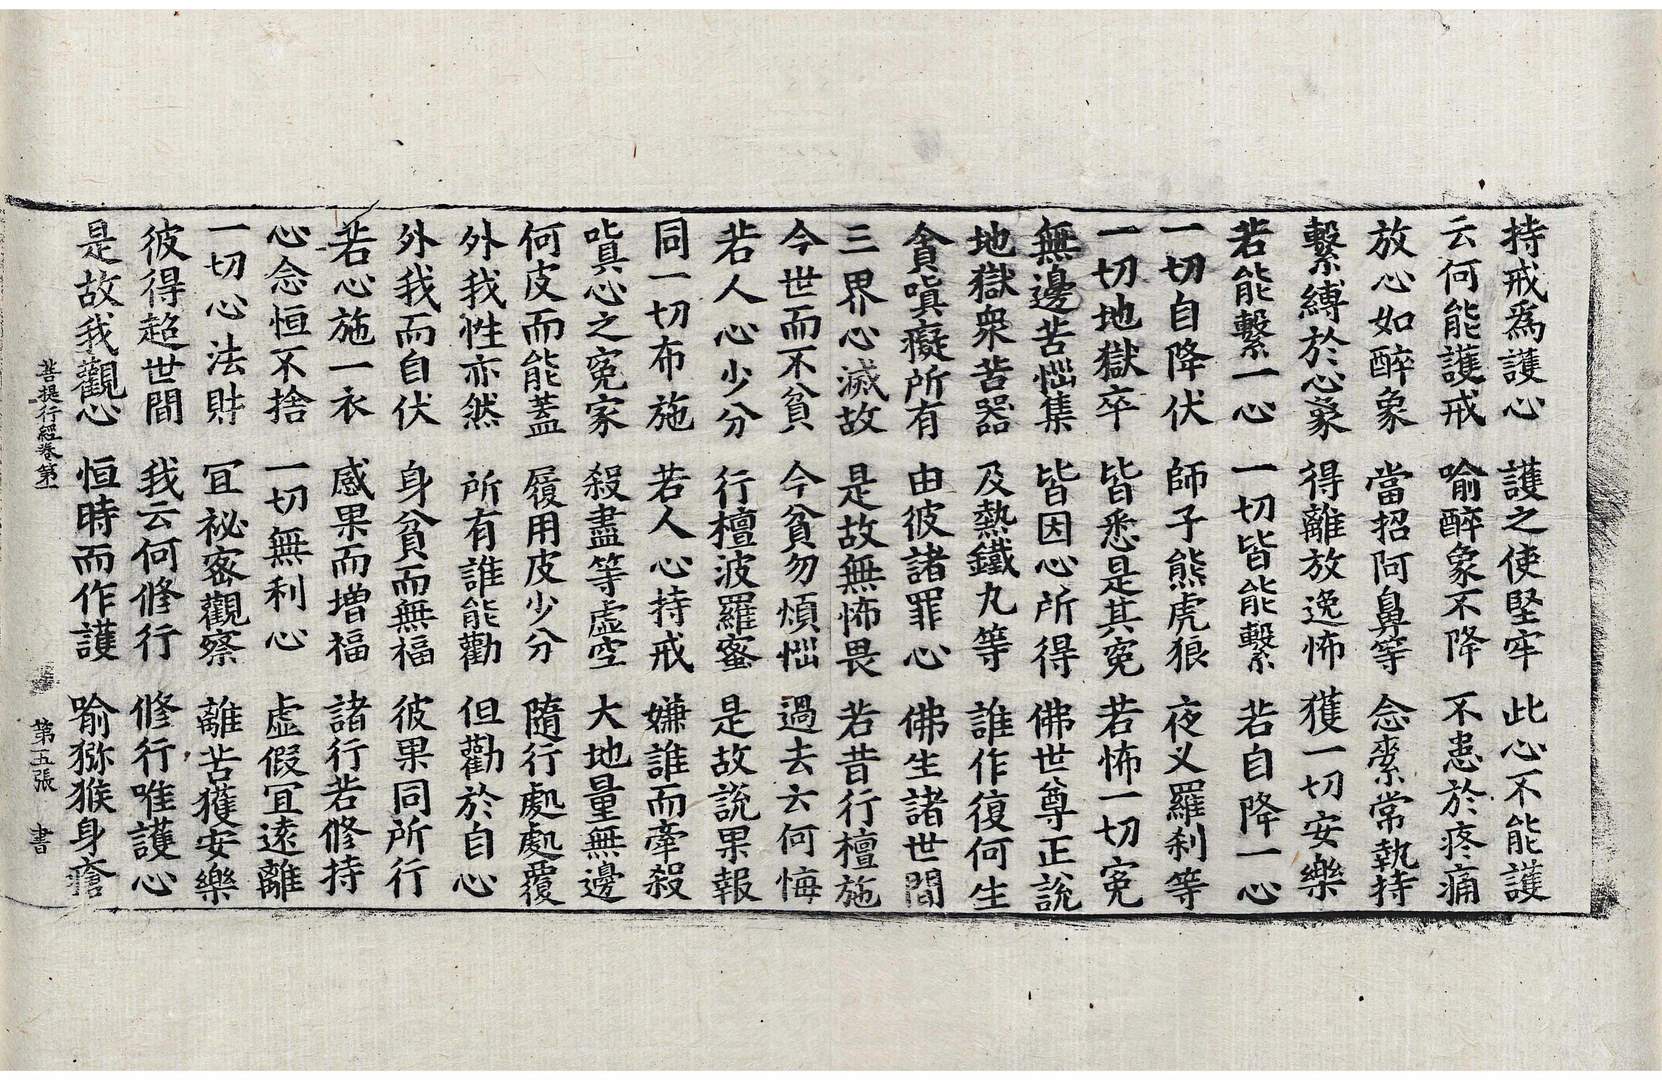 持戒爲護心 護之使堅牢 此心不能護
云何能護戒 喻醉象不降 不患於疼痛
放心如醉象 當招阿鼻等 念索常執持
繫縛於心象 得離放逸怖 獲一切安樂
若能繫一心 一切皆能繫 若自降一心
一切自降伏 師子熊虎狼 夜叉羅刹等
一切地獄卒 皆悉是其寃 若怖一切寃
無邊苦惱集 皆因心所得 佛世尊正說
地獄衆苦器 及熱鐵丸等 誰作復何生
貪嗔癡所有 由彼諸罪心 佛生諸世間
三界心滅故 是故無怖畏 若昔行檀施
今世而不貧 今貧勿煩惱 過去云何悔
若人心少分 行檀波羅蜜 是故說果報
同一切布施 若人心持戒 嫌誰而牽殺
嗔心之寃家 殺盡等虛空 大地量無邊
何皮而能蓋 履用皮少分 隨行處處覆
外我性亦然 所有誰能勸 但勸於自心
外我而自伏 身貧而無福 彼果同所行
若心施一衣 感果而增福 諸行若修持
心念恒不捨 一切無利心 虛假冝遠離
一切心法財 冝祕密觀察 離苦獲安樂
彼得超世間 我云何修行 修行唯護心
是故我觀心 恒時而作護 喻獼猴身瘡
菩提行經卷第一 第五張 書